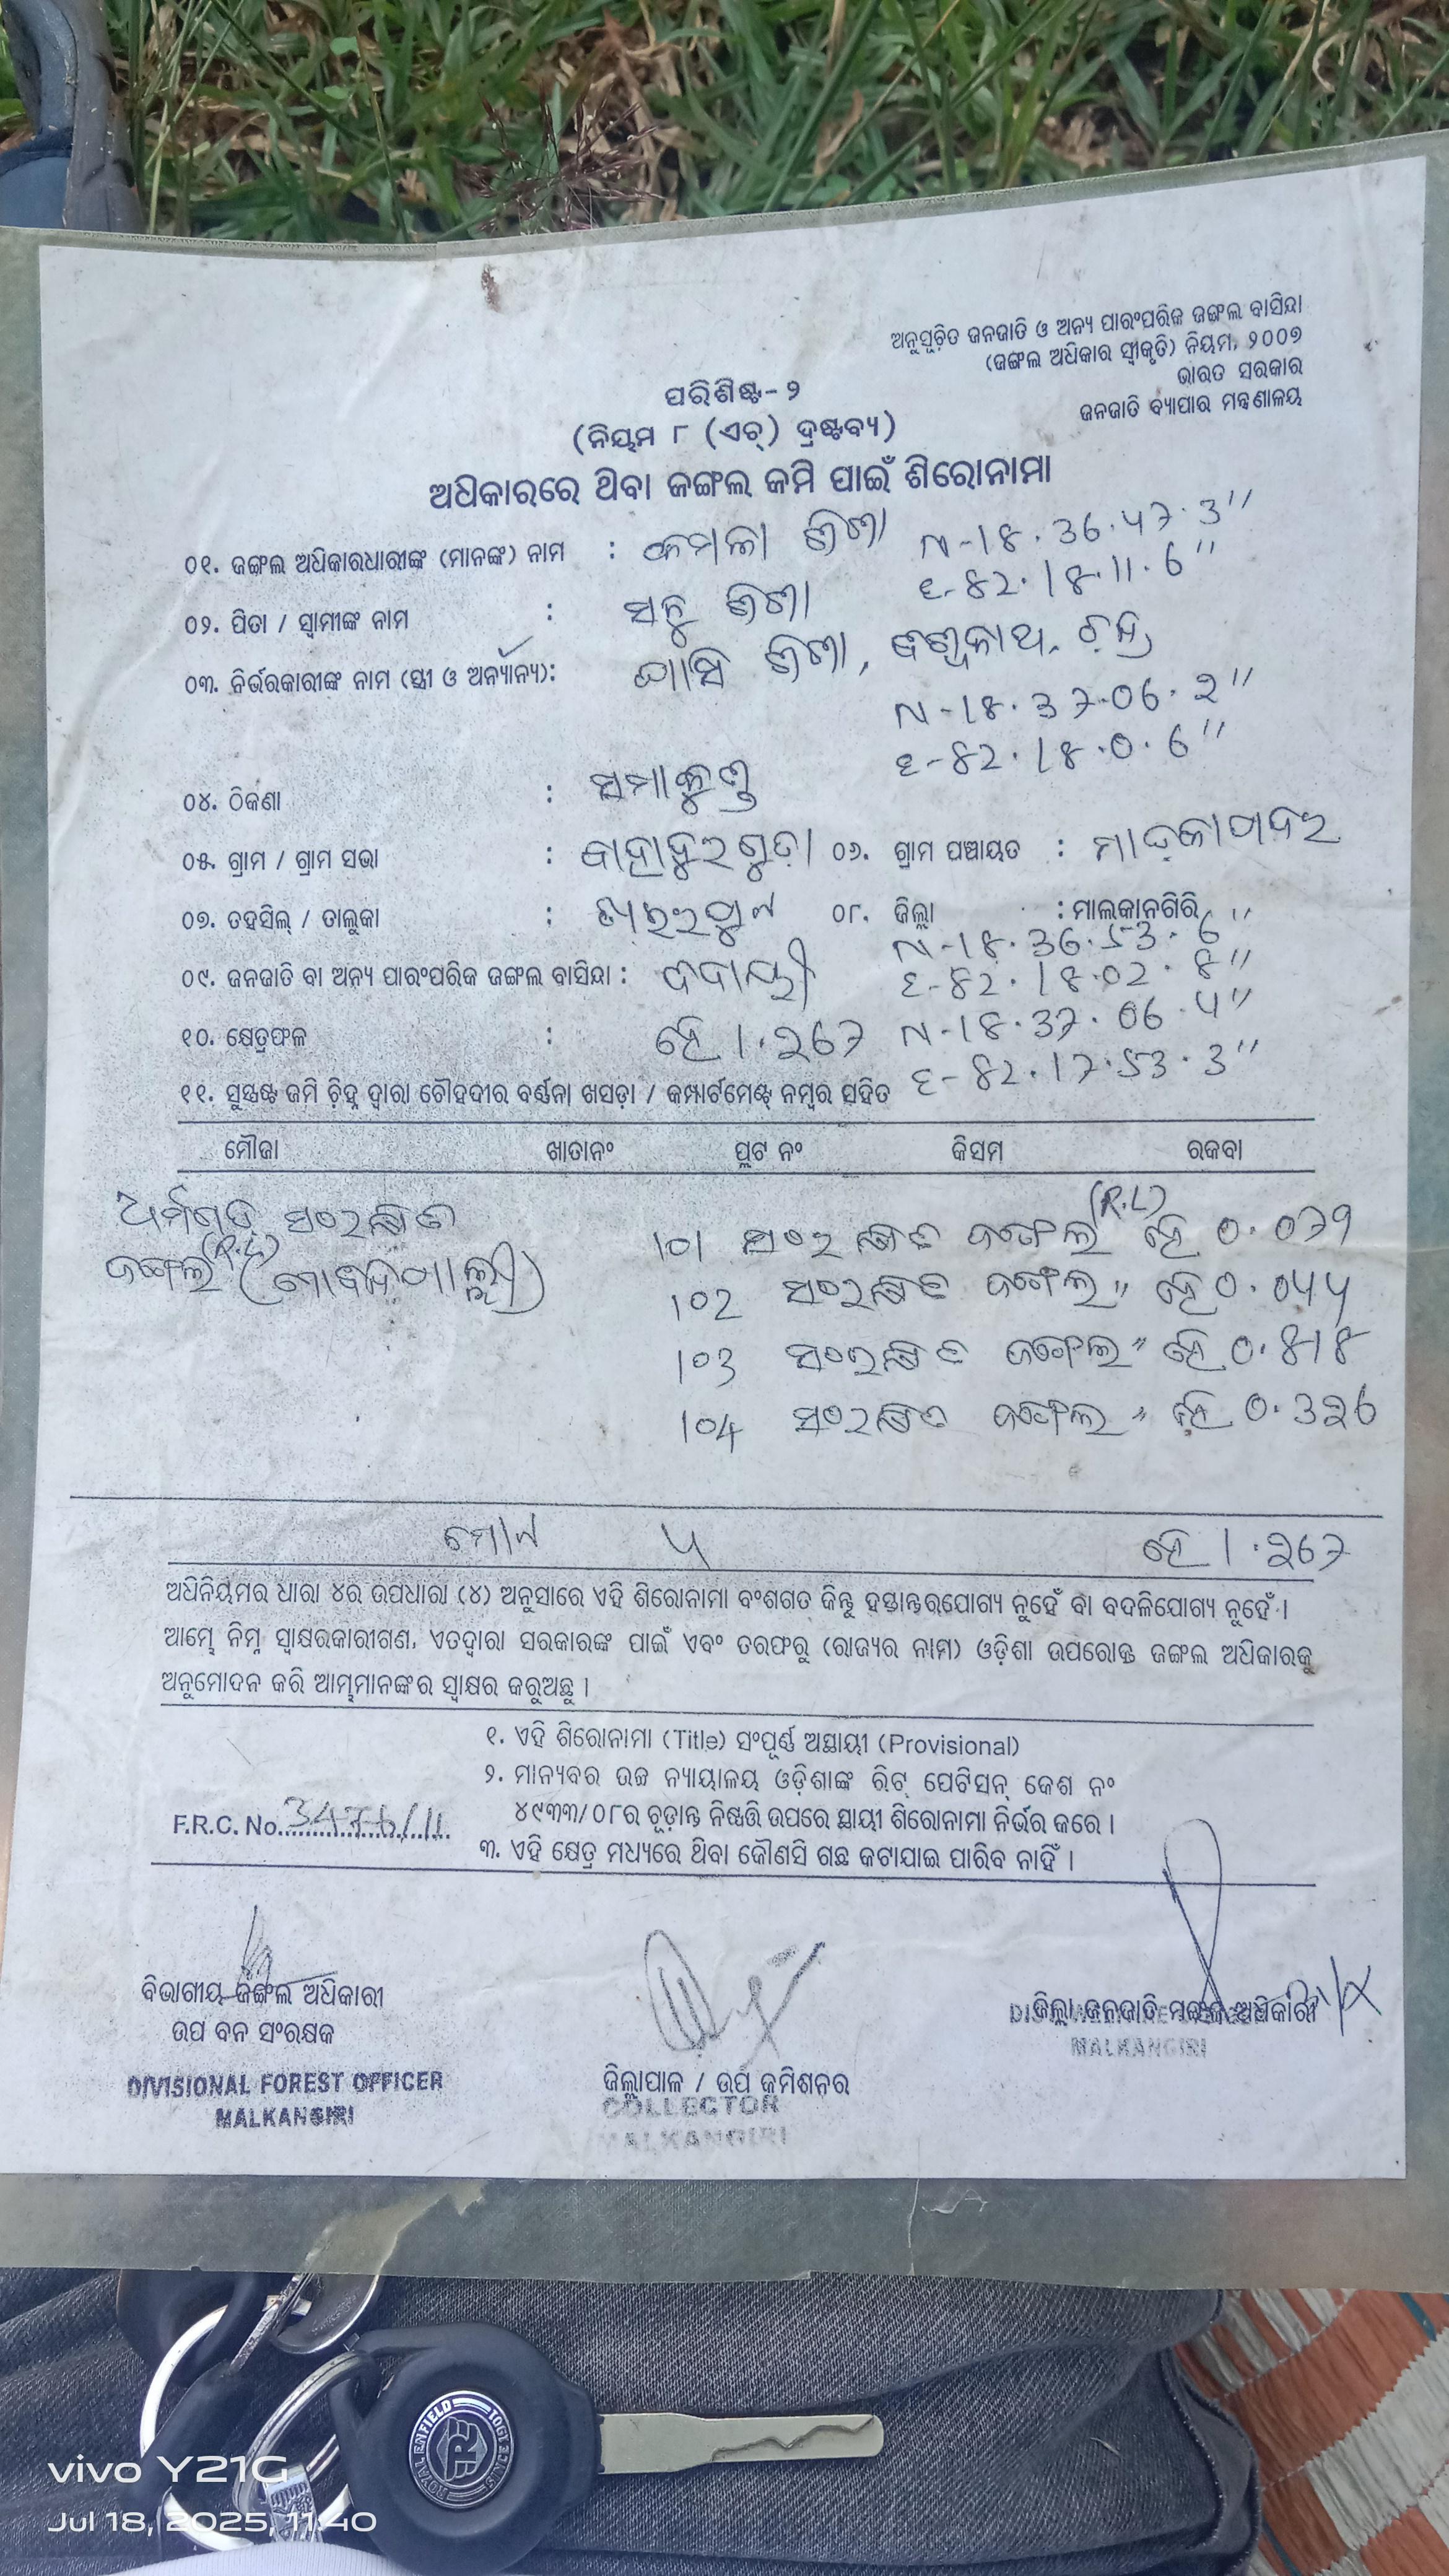 ଅନୁସୂଚିତ ଜନଜାତି ଓ ଅନ୍ୟ ପାରଂପରିକ ଜଙ୍ଗଲ ବାସିନ୍ଦା
(ଜଙ୍ଗଲ ଅଧିକାର ସ୍ୱୀକୃତି) ନିୟମ, ୨୦୦୭
ଭାରତ ସରକାର
ଜନଜାତି ବ୍ୟାପାର ମନ୍ତ୍ରଣାଳୟ
ପରିଶିଷ୍ଟ-୨
(ନିୟମ ୮ (ଏଚ୍) ଦ୍ରଷ୍ଟବ୍ୟ)
ଅଧିକାରରେ ଥିବା ଜଙ୍ଗଲ ଜମି ପାଇଁ ଶିରୋନାମା
୦୧. ଜଙ୍ଗଲ ଅଧିକାରଧାରୀଙ୍କ (ମାନଙ୍କ) ନାମ : କମଳା N-18.36.47.3"
E-82.18.11.6"
୦୨. ପିତା / ସ୍ୱାମୀଙ୍କ ନାମ :
୦୩. ନିର୍ଭରକାରୀଙ୍କ ନାମ (ସ୍ତ୍ରୀ ଓ ଅନ୍ୟାନ୍ୟ):
N-18.37.06.2"
E-82.18.0.6"
୦୪. ଠିକଣା : ସମାକୁଣ୍ଡ
୦୫. ଗ୍ରାମ / ଗ୍ରାମ ସଭା : ବାହାଦୁରଗୁଡ଼ା ୦୬. ଗ୍ରାମ ପଞ୍ଚାୟତ :
୦୭. ତହସିଲ୍ / ତାଲୁକା : ୦୮. ଜିଲ୍ଲା : ମାଲକାନଗିରି
N-18.36.53.6"
୦୯. ଜନଜାତି ବା ଅନ୍ୟ ପାରଂପରିକ ଜଙ୍ଗଲ ବାସିନ୍ଦା : E-82.18.02.8"
୧୦. କ୍ଷେତ୍ରଫଳ : ହେ 1.267 N-18.37.06.4"
E-82.17.53.3"
୧୧. ସୁସ୍ପଷ୍ଟ ଜମି ଚିହ୍ନ ଦ୍ୱାରା ଚୌହଦୀର ବର୍ଣ୍ଣନା ଖସଡ଼ା / କମ୍ପାର୍ଟମେଣ୍ଟ୍ ନମ୍ବର ସହିତ
ମୌଜା ଖାତାନଂ ପ୍ଲଟ ନଂ କିସମ ରକବା
ସଂରକ୍ଷିତ
ଜଙ୍ଗଲ (R.L)
101 ସଂରକ୍ଷିତ ଜଙ୍ଗଲ (R.L) ହେ 0.079
102 ସଂରକ୍ଷିତ ଜଙ୍ଗଲ " ହେ 0.044
103 ସଂରକ୍ଷିତ ଜଙ୍ଗଲ " ହେ 0.818
104 ସଂରକ୍ଷିତ ଜଙ୍ଗଲ " ହେ 0.326
ମୋଟ 4 ହେ 1.267
ଅଧିନିୟମର ଧାରା ୪ର ଉପଧାରା (୪) ଅନୁସାରେ ଏହି ଶିରୋନାମା ବଂଶଗତ କିନ୍ତୁ ହସ୍ତାନ୍ତରଯୋଗ୍ୟ ନୁହେଁ ବା ବଦଳିଯୋଗ୍ୟ ନୁହେଁ ।
ଆମ୍ଭେ ନିମ୍ନ ସ୍ୱାକ୍ଷରକାରୀଗଣ, ଏତଦ୍ୱାରା ସରକାରଙ୍କ ପାଇଁ ଏବଂ ତରଫରୁ (ରାଜ୍ୟର ନାମ) ଓଡ଼ିଶା ଉପରୋକ୍ତ ଜଙ୍ଗଲ ଅଧିକାରକୁ
ଅନୁମୋଦନ କରି ଆମ୍ଭମାନଙ୍କର ସ୍ୱାକ୍ଷର କରୁଅଛୁ ।
୧. ଏହି ଶିରୋନାମା (Title) ସଂପୂର୍ଣ୍ଣ ଅସ୍ଥାୟୀ (Provisional)
୨. ମାନ୍ୟବର ଉଚ୍ଚ ନ୍ୟାୟାଳୟ ଓଡ଼ିଶାଙ୍କ ରିଟ୍ ପେଟିସନ୍ କେଶ ନଂ
୪୯୩୩/୦୮ର ଚୂଡ଼ାନ୍ତ ନିଷ୍ପତ୍ତି ଉପରେ ସ୍ଥାୟୀ ଶିରୋନାମା ନିର୍ଭର କରେ ।
F.R.C. No.
୩. ଏହି କ୍ଷେତ୍ର ମଧ୍ୟରେ ଥିବା କୌଣସି ଗଛ କଟାଯାଇ ପାରିବ ନାହିଁ ।
ବିଭାଗୀୟ ଜଙ୍ଗଲ ଅଧିକାରୀ
ଉପ ବନ ସଂରକ୍ଷକ
DIVISIONAL FOREST OFFICER
MALKANGIRI
ଜିଲ୍ଲାପାଳ / ଉପ କମିଶନର
COLLECTOR
MALKANGIRI
ଜିଲ୍ଲା ଜନଜାତି ମଙ୍ଗଳ ଅଧିକାରୀ
MALKANGIRI
ROYAL ENFIELD
SINCE 1901
vivo Y21G
Jul 18, 2025, 11:40